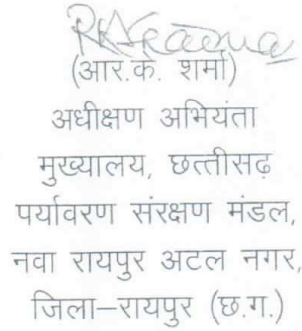 (आर.के. शर्मा)
अधीक्षण अभियंता
मुख्यालय, छत्तीसगढ़
पर्यावरण संरक्षण मंडल,
नवा रायपुर अटल नगर,
जिला–रायपुर (छ.ग.)